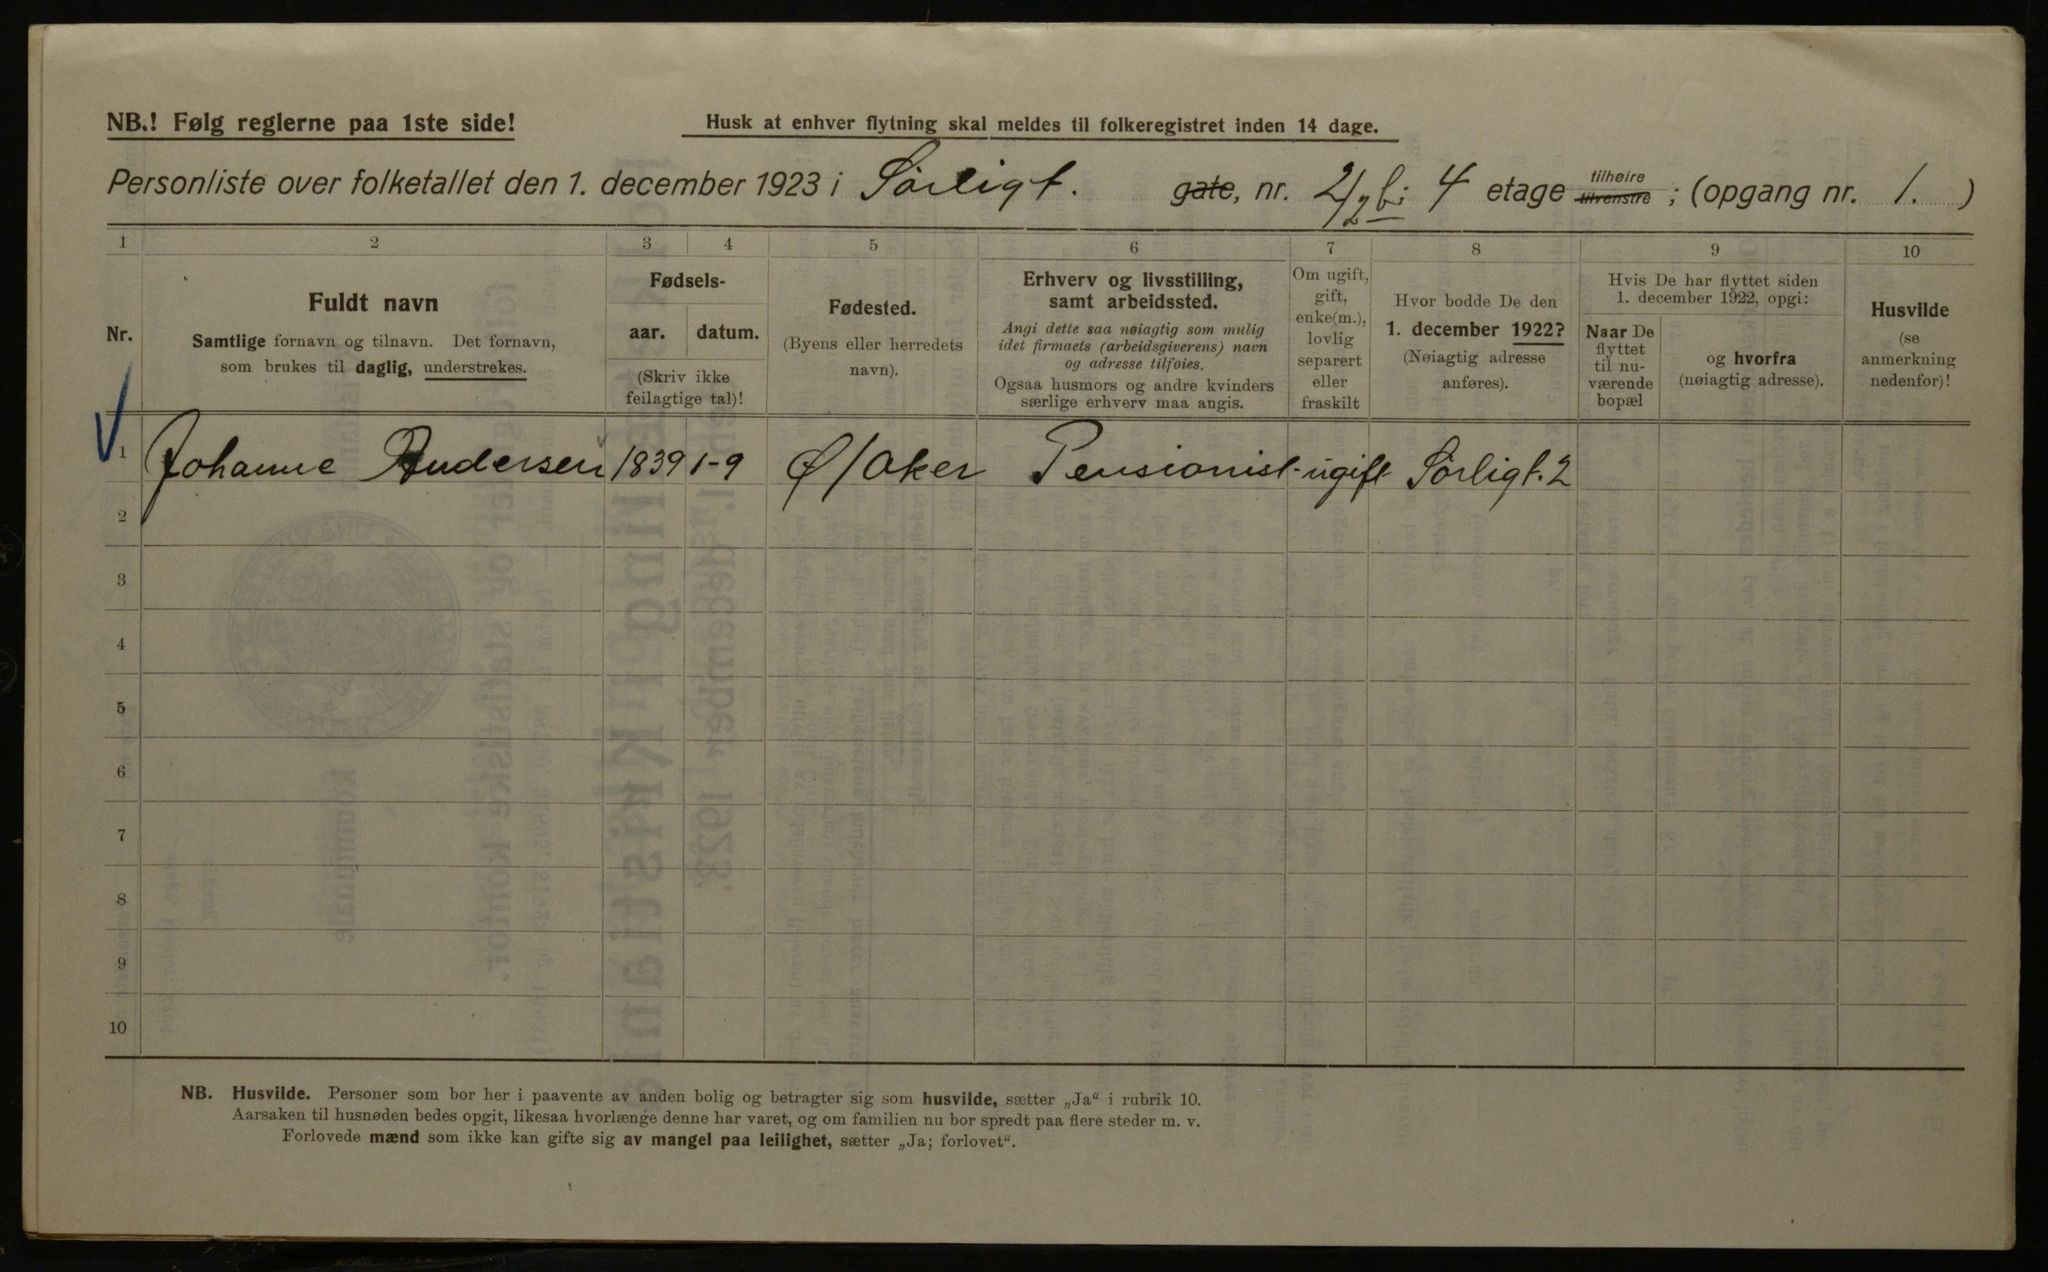 NB.! Følg reglerne paa 1ste side!
Husk at enhver flytning skal meldes til folkeregistret inden 14 dage.
Personliste over folketallet den 1. december 1923 i Sørligt. gate, nr. 2/2 b; 4 etage tilhøire tilvenstre ; (opgang nr. 1. )
1 2 3 4 5 6 7 8 9 10
Nr.
Fuldt navn
Samtlige fornavn og tilnavn. Det fornavn,
som brukes til daglig, understrekes.
Fødsels-
aar. datum.
(Skriv ikke
feilagtige tal)!
Fødested.
(Byens eller herredets
navn).
Erhverv og livsstilling,
samt arbeidssted.
Angi dette saa nøiagtig som mulig
idet firmaets (arbeidsgiverens) navn
og adresse tilføies.
Ogsaa husmors og andre kvinders
særlige erhverv maa angis.
Om ugift,
gift,
enke(m.),
lovlig
separert
eller
fraskilt
Hvor bodde De den
1. december 1922?
(Nøiagtig adresse
anføres).
Hvis De har flyttet siden
1. december 1922, opgi:
Naar De
flyttet
til nu-
værende
bopæl
og hvorfra
(nøiagtig adresse).
Husvilde
(se
anmerkning
nedenfor)!
1 Johanne Andersen 1839 1-9 Ø/Aker Pensionist ugift Sørligt. 2
2
3
4
5
6
7
8
9
10
NB. Husvilde. Personer som bor her i paavente av anden bolig og betragter sig som husvilde, sætter „Ja“ i rubrik 10.
Aarsaken til husnøden bedes opgit, likesaa hvorlænge denne har varet, og om familien nu bor spredt paa flere steder m. v.
Forlovede mænd som ikke kan gifte sig av mangel paa leilighet, sætter „Ja; forlovet“.